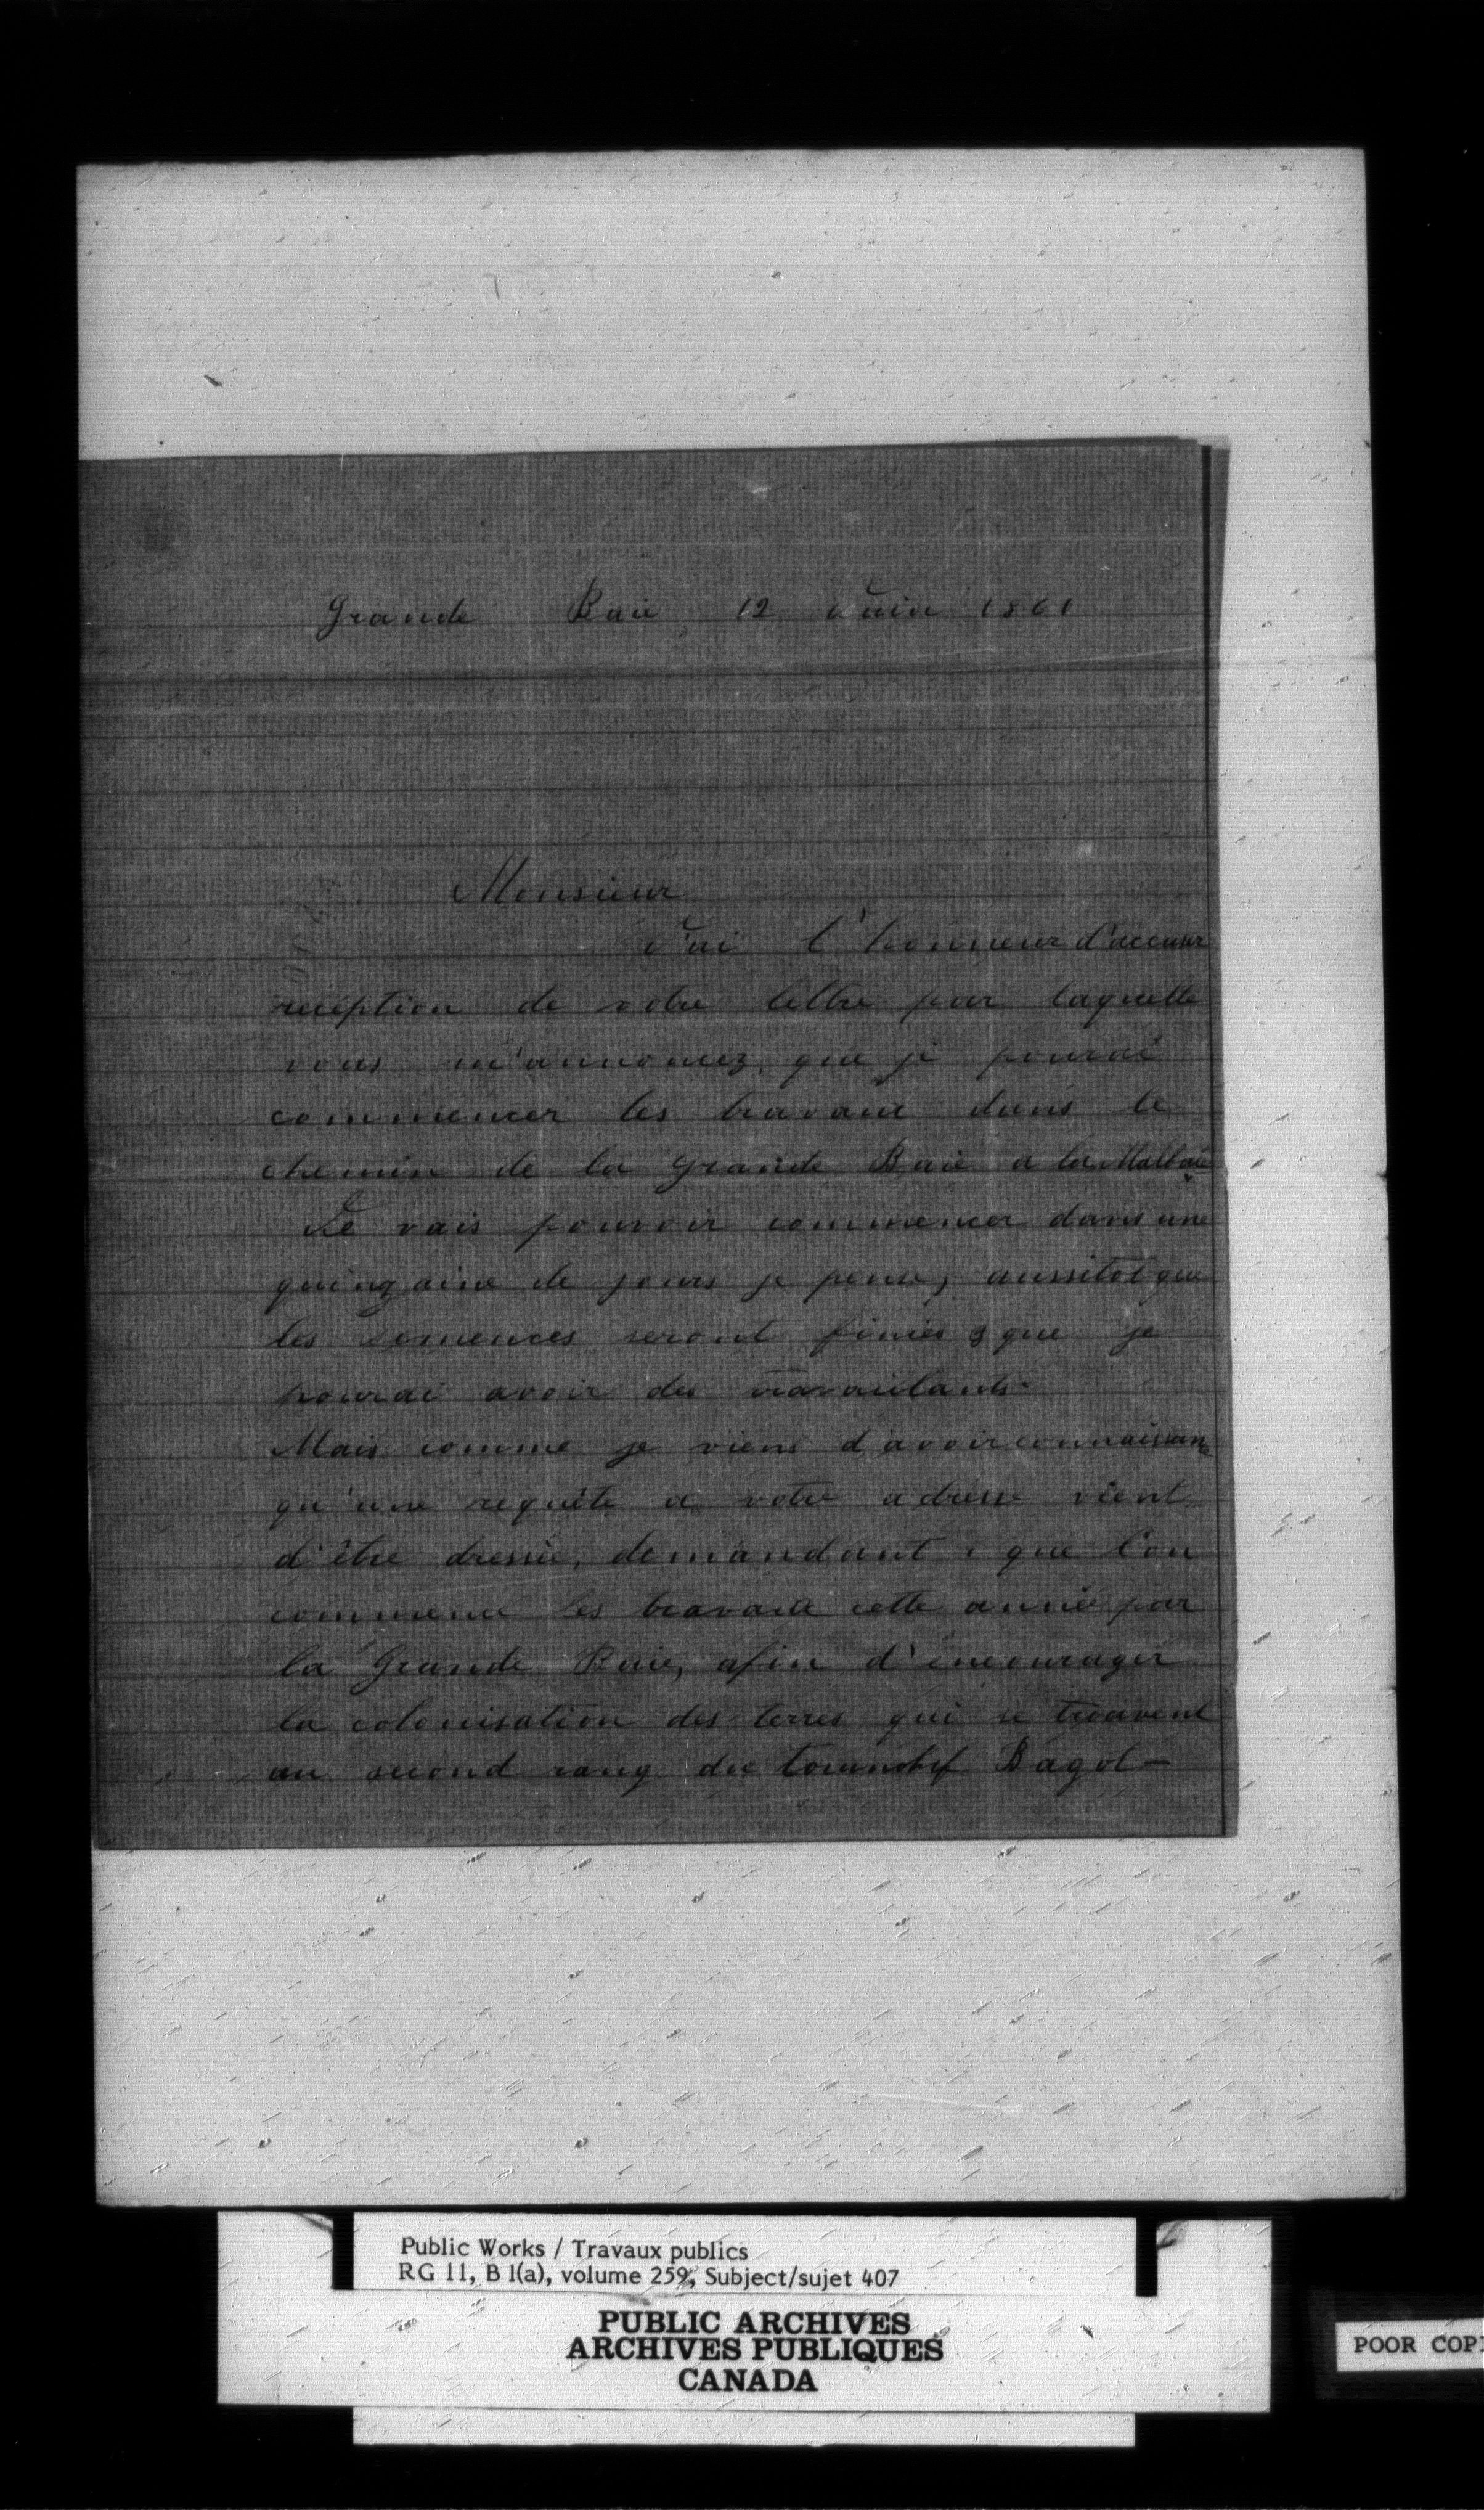 Grande Baie 12 Juin 1861
Monsieur
J'ai l'honneur d'accuser
reception de votre lettre par laquelle
vous m'annoncez que je pourai
commencer les travaux dans le
chemin de la Grande Baie a la Malbaie
Je vais pouvoir commencer dans une
quinzaine de jours je pense, aussitot que
les semences seront finies & que je
pourai avoir des travailants.
Mais comme je viens d'avoir connaissance
qu'une requête a votre adresse vient
d'être dressée, demandant que l'on
commence les travaux cette année par
la Grande Baie, afin d'encourager
la colonisation des terres qui se trouvent
au second rang du township Bagot -
Public Works / Travaux publics
RG 11, B 1(a), volume 259, Subject/sujet 407
PUBLIC ARCHIVES
ARCHIVES PUBLIQUES
CANADA
POOR COP